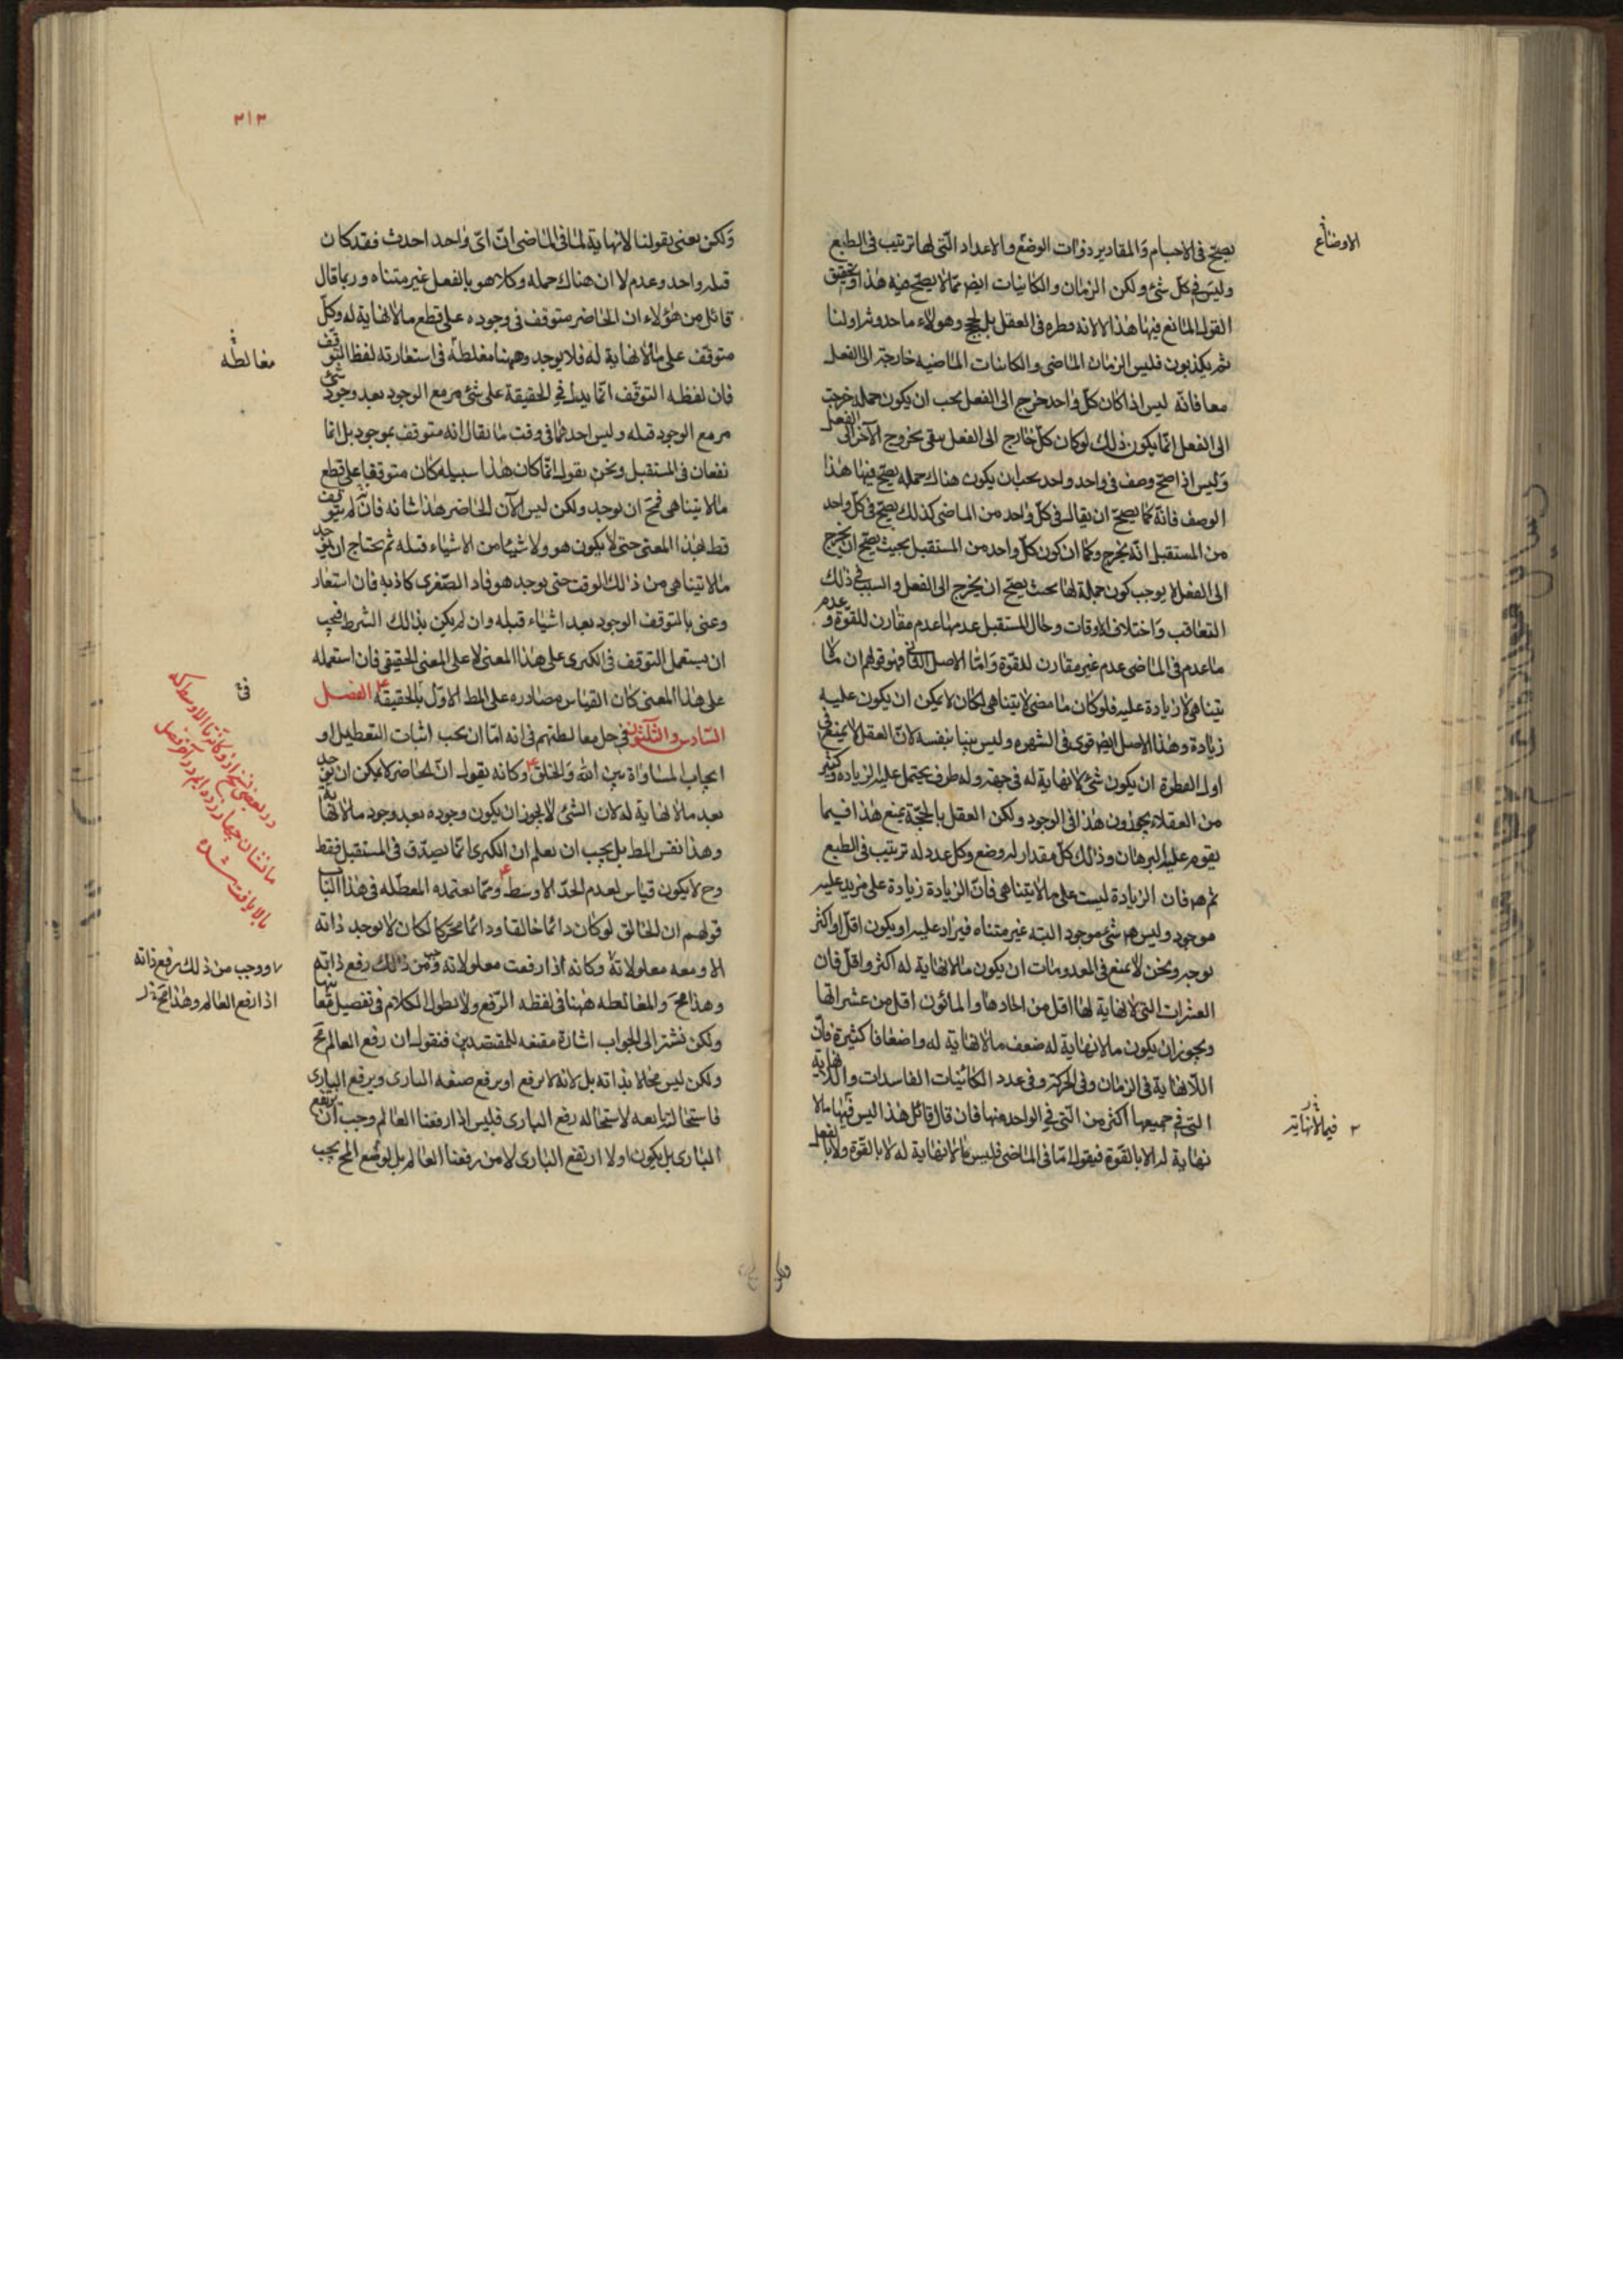 الاوضاع
يصحّ فى الاجسام والمقادير ذوات الوضع والاعداد الّتى لها ترتيب فى الطبع
وليس فى كلّ شئ ولكن الزمان والكاينات ايضا ممّا لا يصحّ فيه هذا وتحقيق
القول المانع فيها هذا لا لانه فطرة فى العقل بل بحجج وهولاء ما حدوثر اولنا
ثم يكذبون فليس الزمان الماضى والكاينات الماضيه خارجة الى الفعل
معا فانّه ليس اذا كان كلّ واحد خرج الى الفعل يجب ان يكون جمله خرجت
الى الفعل انّما يكون ذلك لو كان كلّ خارج الى الفعل يبقى بخروج الآخر الى الفعل
وليس اذا صحّ وصف فى واحد واحد يجب ان يكون هناك جمله يصحّ فيها هذا
الوصف فانّه كما يصحّ ان يقال فى كلّ واحد من الماضى كذلك يصحّ فى كلّ واحد
من المستقبل انّه يخرج وكما ان كون كلّ واحد من المستقبل بحيث يصحّ ان يخرج
الى الفعل لا يوجب كون جملة لها بحيث يصحّ ان يخرج الى الفعل والسبب فى ذلك
التعاقب واختلاف الاوقات وحال المستقبل عدمها عدم مقارن للقوّة وعدم
ما عدم فى الماضى عدم غير مقارن للقوّة وامّا الاصل الثانى فهو قولهم ان ما لا
يتناهى لا زيادة عليه فلو كان ما مضى لا يتناهى لكان لا يمكن ان يكون عليه
زيادة وهذا الاصل ايضا قوى فى الشهره وليس بيّنا بنفسه لانّ العقل لا يمنع فى
اول الفطرة ان يكون شئ لا نهاية له فى جهة وله طرف يحتمل عليه الزياده وكثير
من العقلاء يجوزون هذا فى الوجود ولكن العقل بالحجّة يمنع هذا فيما
يقوم عليه البرهان وذلك كلّ مقدار له وضع وكل عدد له ترتيب فى الطبع
ثم هو فان الزيادة ليست على ما لا يتناهى فانّ الزيادة زيادة على مزيد عليه
موجود وليس هو شئ موجود البته غير متناه فيزاد عليه او يكون اقلّ او اكثر
يوجد ونحن لا نمنع فى المعدومات ان يكون ما لا نهاية له اكثر واقلّ فان
العشرات التى لا نهاية لها اقل من احادها والمائون اقل من عشراتها
ويجوز ان يكون ما لا نهاية له ضعف ما لا نهاية له واضعافا كثيرة فانّ
اللّانهاية فى الزمان وفى الحركة وفى عدد الكائنيات الفاسدات واللانهاية
التى فى جميعها اكثر من الّتى فى الواحد منها فان قال قائل هذا اليس فيها ما لا
٢ فيما لا نهاية
نهاية له الا بالقوّة فيقول امّا فى الماضى فليس ما لا نهاية له لا بالقوّة ولا بالفعل
ولكن
٣١٣
ولكن نعنى بقولنا لا نهاية لما فى الماضى انّ اىّ واحد احدث فقد كان
قبله واحد وعدم لا ان هناك جمله وكلا هو بالفعل غير متناه وربما قال
قائل من هؤلاء ان الحاضر متوقف فى وجوده على قطع ما لا نهاية له وكلّ
مغالطه
متوقّف على ما لا نهاية له فلا يوجد وههنا مغلطة فى استعارته لفظ التوقّف
فان لفظه التوقّف انّما يدلّ فى الحقيقة على شئ مر مع الوجود بعد وجود شئ
مر مع الوجود قبله وليس احدهما فى وقت ما يقال انه متوقف بموجود بل انّما
نفعان فى المستقبل ونحن نقول انّما كان هذا سبيله كان متوقفا على قطع
ما لا يتناهى فمح ان يوجد ولكن ليس الآن الحاضر هذا شانه فانّه لم يتوقف
قط بهذا المعنى حتى لا يكون هو ولا شيئا من الاشياء قبله ثم يحتاج ان يوجد
ما لا يتناهى من ذلك الوقت حتى يوجد هو فاذ الصّغرى كاذبه فان استعار
وعنى بالمتوقف الوجود بعد اشياء قبله وان لم يكن بذلك الشرط فيجب
ان يستعمل التوقف فى الكبرى على هذا المعنى لا على المعنى الحقيقى فان استعمله
على هذا المعنى كان القياس مصادره على المط الاوّل بالحقيقه الفصل
السّادس والثّلثون فى حل مغالطتهم فى انه امّا ان يجب اثبات التعطيل او
ايجاب المساواة بين الله والخلق وكانه يقول انّ الحاضر لا يمكن ان يوجد
بعد ما لا نهاية له لان الشئ لا يجوز ان يكون وجوده بعد وجود ما لا نهاية
وهذا نفس المط بل يجب ان نعلم ان الكبرى انّما يصدّق فى المستقبل فقط
وح لا يكون قياس لعدم الحدّ الاوسط وممّا يعتمده المعطّله فى هذا الباب
قولهم ان الخالق لو كان دائما خالقا ودائما محرّكا لكان لا يوجد ذاته
الا ومعه معلولاته وكانه اذا رفعت معلولاته وجب من ذلك رفع ذاته
وهذا مح والمغالطه ههنا فى لفظه الرّفع ولا نطول الكلام فى تفصيل معانيها
ولكن نشير الى الجواب اشارة مقنعه للمقتصدين فنقول ان رفع العالم مح
ولكن ليس محالا بذاته بل لانه لا يرفع او يرفع صفه البارى ويرفع البارى
فاستحالته تابعه لاستحاله رفع البارى فليس اذا رفعنا العالم وجب ان يرتفع
البارى بل يكون اولا ارتفع البارى لا من رفعنا العالم بل لو وضع المح يجب
در بعضى نسخ از وكانه تا الاوسط كه
ما نشان چهار زده ايم در آخر فصل
بالا يافت شده
ووجب من ذلك رفع ذاته
اذا رفع العالم وهذا مح